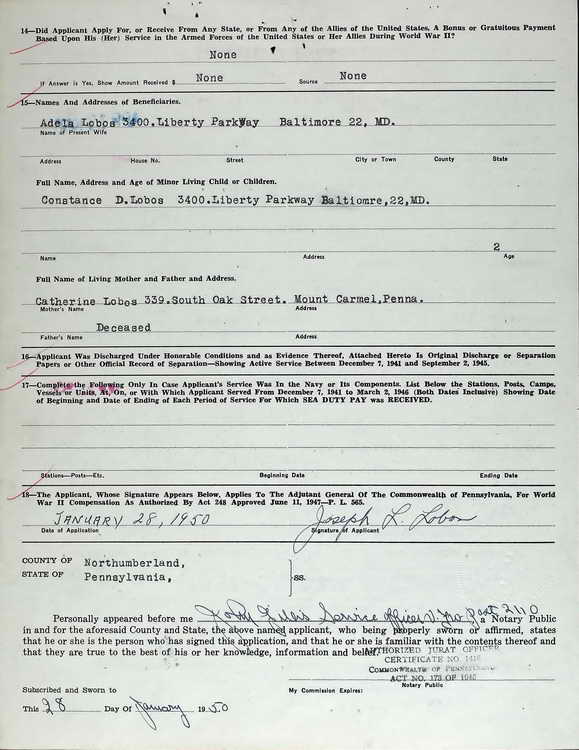 14—Did Applicant Apply For, or Receive From Any State, or From Any of the Allies of the United States, A Bonus or Gratuitous Payment
Based Upon His (Her) Service in the Armed Forces of the United States or Her Allies During World War II?
None
If Answer is Yes, Show Amount Received $ None Source None
15—Names And Addresses of Beneficiaries.
Adela Lobos 3400.Liberty Parkway Baltimore 22, MD.
Name of Present Wife
Address House No. Street City or Town County State
Full Name, Address and Age of Minor Living Child or Children.
Constance D.Lobos 3400.Liberty Parkway Baltiomre,22,MD.
2
Name Address Age
Full Name of Living Mother and Father and Address.
Catherine Lobos 339.South Oak Street. Mount Carmel,Penna.
Mother's Name Address
Deceased
Father's Name Address
16—Applicant Was Discharged Under Honorable Conditions and as Evidence Thereof, Attached Hereto Is Original Discharge or Separation
Papers or Other Official Record of Separation—Showing Active Service Between December 7, 1941 and September 2, 1945.
17—Complete the Following Only In Case Applicant's Service Was In the Navy or Its Components. List Below the Stations, Posts, Camps,
Vessels or Units, At, On, or With Which Applicant Served From December 7, 1941 to March 2, 1946 (Both Dates Inclusive) Showing Date
of Beginning and Date of Ending of Each Period of Service For Which SEA DUTY PAY was RECEIVED.
Stations—Posts—Etc. Beginning Date Ending Date
18—The Applicant, Whose Signature Appears Below, Applies To The Adjutant General Of The Commonwealth of Pennsylvania, For World
War II Compensation As Authorized By Act 248 Approved June 11, 1947—P. L. 565.
JANUARY 28, 1950 Joseph L. Lobos
Date of Application Signature of Applicant
COUNTY OF Northumberland,
STATE OF Pennsylvania, ss.
Personally appeared before me Service Officer Post 2110 a Notary Public
in and for the aforesaid County and State, the above named applicant, who being properly sworn or affirmed, states
that he or she is the person who has signed this application, and that he or she is familiar with the contents thereof and
that they are true to the best of his or her knowledge, information and belief.
AUTHORIZED JURAT OFFICER
CERTIFICATE NO.
COMMONWEALTH OF PENNSYLVANIA
ACT NO. 173 OF
Notary Public
Subscribed and Sworn to My Commission Expires:
This 28 Day Of January 1950